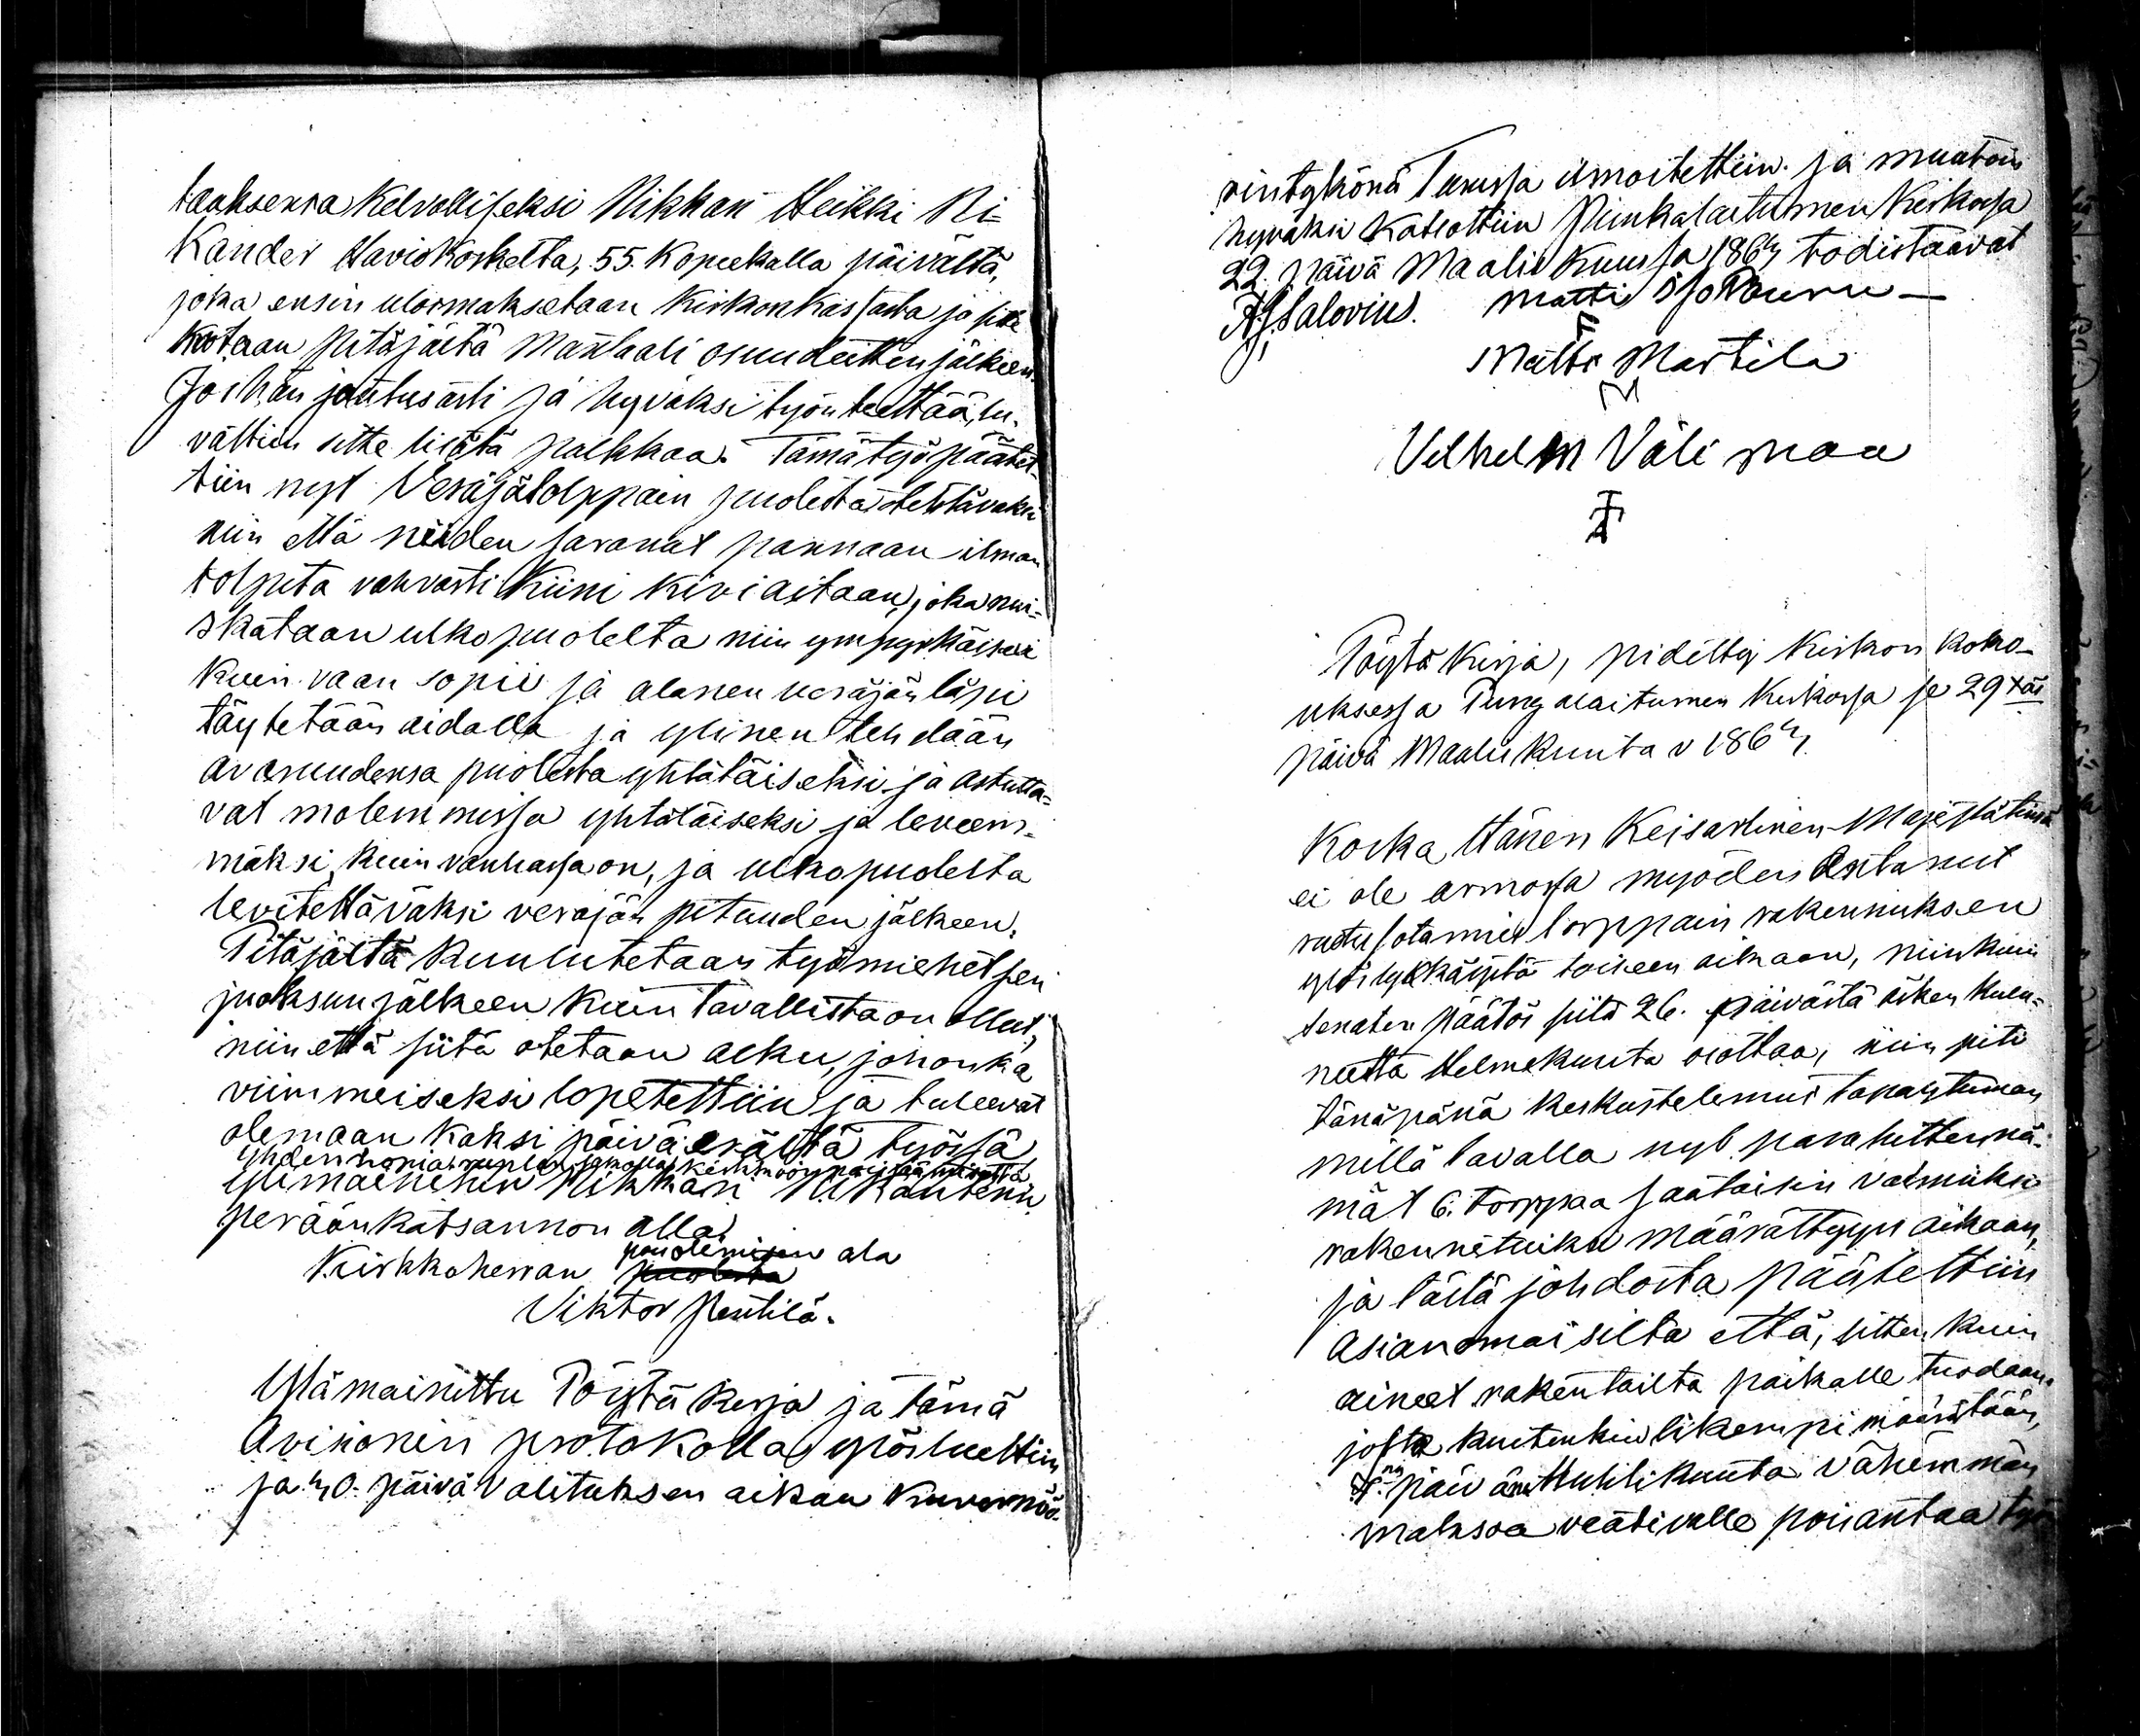 taaksensa Kelvolliseksi Nikkari Heikki Ni-
Kander Haviskoskelta, 55. Kopeekalla päivältä,
joka ensin ulosmaksetaan Kirkonkassasta ja sitte
kootaan pitäjältä Manttaali osuudeitten jälkeen.
Jos hän joutusasti ja hyväksi työn teettää, lu-
vattiin sitte lisätä palkkaa. Tämä työ päätet
tiin nyt Veräjätolppain puolesta tehtäväksi
niin että niiden saranat pannaan ilman
tolpita vahvasti Kiini Kiviaitaan, joka mui-
skataan ulkopuolelta niin ympyrkäiseksi
Kuin vaan sopii ja alanen veräjän läpi
täytetään aidalla ja ylinen tehdään
avaruudensa puolesta yhtäläiseksi ja astutta-
vat molemmissa yhtäläiseksi ja leveem-
mäksi, kuin vanhassa on, ja ulkopuolelta
levitettäväksi veräjän pituuden jälkeen.
Pitäjältä Kuulutetaan työmiehet sen
juoksun jälkeen kuin tavallista on ollut,
niin että siitä otetaan alku, johonka
viimmeiseksi lopetettiin ja tuleevat
olemaan kaksi päivä erältä työssä
ylimainitun Nikkari Nikanderin
perään katsannon alla.
Kirkkoherran poisolemisen ala
Viktor Penttilä.
Ylämainittu Pöytäkirja ja tämä
Avinonen protokolla ylösluettiin
ja 40. päivä Valituksen aikaa Kuvernöö-
rintykönä Turussa ilmoitettiin ja muutoin
hyväksi Katsottiin Punkalaitumen Kirkossa
22. päivä Maalis Kuussa 1864 todistaavat
A. J. Salovius. Matti Iso Rouru
Matti Marttila
Vilhelm Välimaa
Pöytä Kirja, pidetty Kirkon koko-
uksessa Pungalaitumen Kirkossa se 29 täs
päivä Maaliskuuta v 1864.
Koska Hänen Keisarlinen Majestätinsä
ei ole armossa myöden antanut
ruotusotamies torppain rakennuksen
ylöslykkäystä toiseen aikaan, niinkuin
senatin päätös siitä 26. päivästä äsken kulu-
nutta Helmekuuta osottaa, niin piti
tänäpänä keskustelemus tapahtuman
millä tavalla nyt parahitten nä-
mät 6. torppaa saataisiin valmiiksi
rakennetuiksi määrättyyn aikaan,
ja tästä johdosta päätettiin
asianomaisilta että, sitten kuin
aineet rakentailta paikalle tuodaan,
josta kuitenkin likempi määrätään,
päivänä Huhtikuuta vähemmän
maksoa veätivalle poisantaa työ